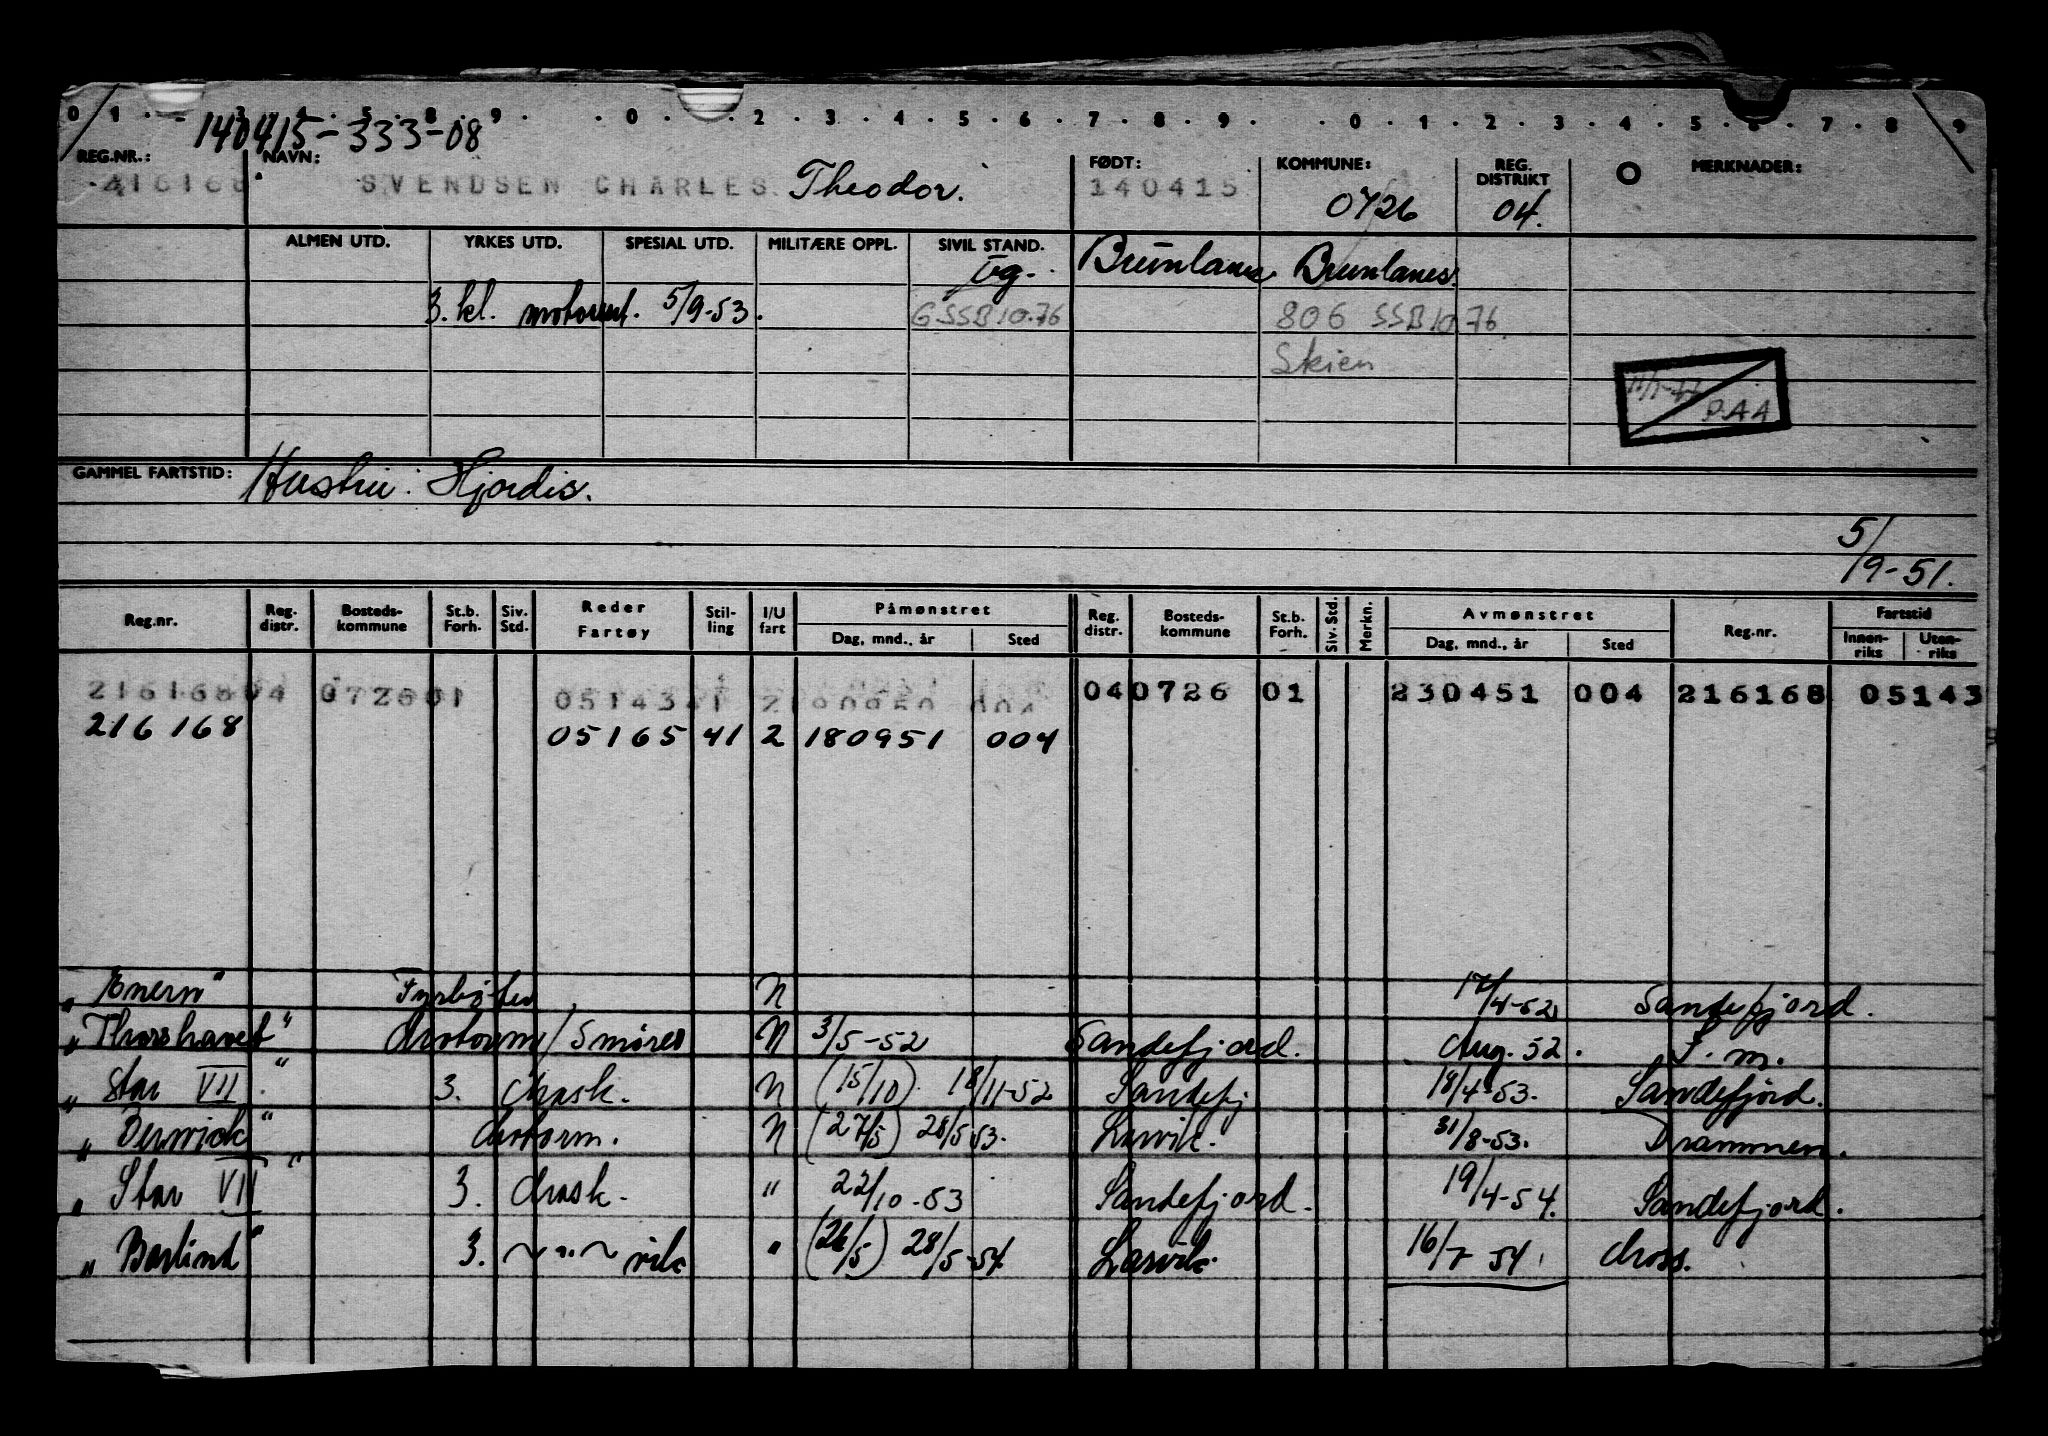 0 1 . . 3 . 4 . 5 . 8 . 9 . . 0 . . 2 . 3 . 4 . 5 . 6 . 7 . 8 . 9 . . 0 . 1 . 2 . 3 . 4 . 5 . 6 . 7 . 8 . 9
140415-333-08
REG.NR.: NAVN: FØDT: KOMMUNE: REG. DISTRIKT O MERKNADER:
216168 SVENDSEN CHARLES Theodor. 140415 0726 04.
ALMEN UTD. YRKES UTD. SPESIAL UTD. MILITÆRE OPPL. SIVIL STAND.
ug. Brunlanes Brunlanes.
3. kl. 5/9-53. GSSB10.76 806 SSB10.76
Skien
P.A.A
GAMMEL FARTSTID: Hustru: Hjordis.
5/
/9-51.
Reg.nr. Reg. distr. Bosteds-kommune St.b. Forh. Siv. Std. Reder Fartøy Stil-ling I/U fart Påmønstret Dag, mnd., år Sted Reg. distr. Bosteds-kommune St.b. Forh. Siv. Std. Merkn. Avmønstret Dag, mnd., år Sted Reg.nr. Fartstid Innen-riks Uten-riks
216168 04 0726 01 05143 41 004 04 0726 01 230451 004 216168 05143
216168 05165 41 2 180951 004
"Enern" Fyrbøter N 17/4-52 Sandefjord.
"Thorshavet" Motorm/Smører N 3/5-52 Sandefjord. Aug. 52. S.m.
"Star VII" 3. Mask. N (15/10) 18/11-52 Sandefj 18/4-53. Sandefjord.
"Berwick" Motorm. N (27/5) 28/5-53. Larvik. 31/8-53. Drammen.
"Star VII" 3. Mask. " 22/10-53 Sandefjord. 19/4-54. Sandefjord.
"Barlind" 3. ~"~ vik " (26/5) 28/5-54 Larvik. 16/7 54. Moss.